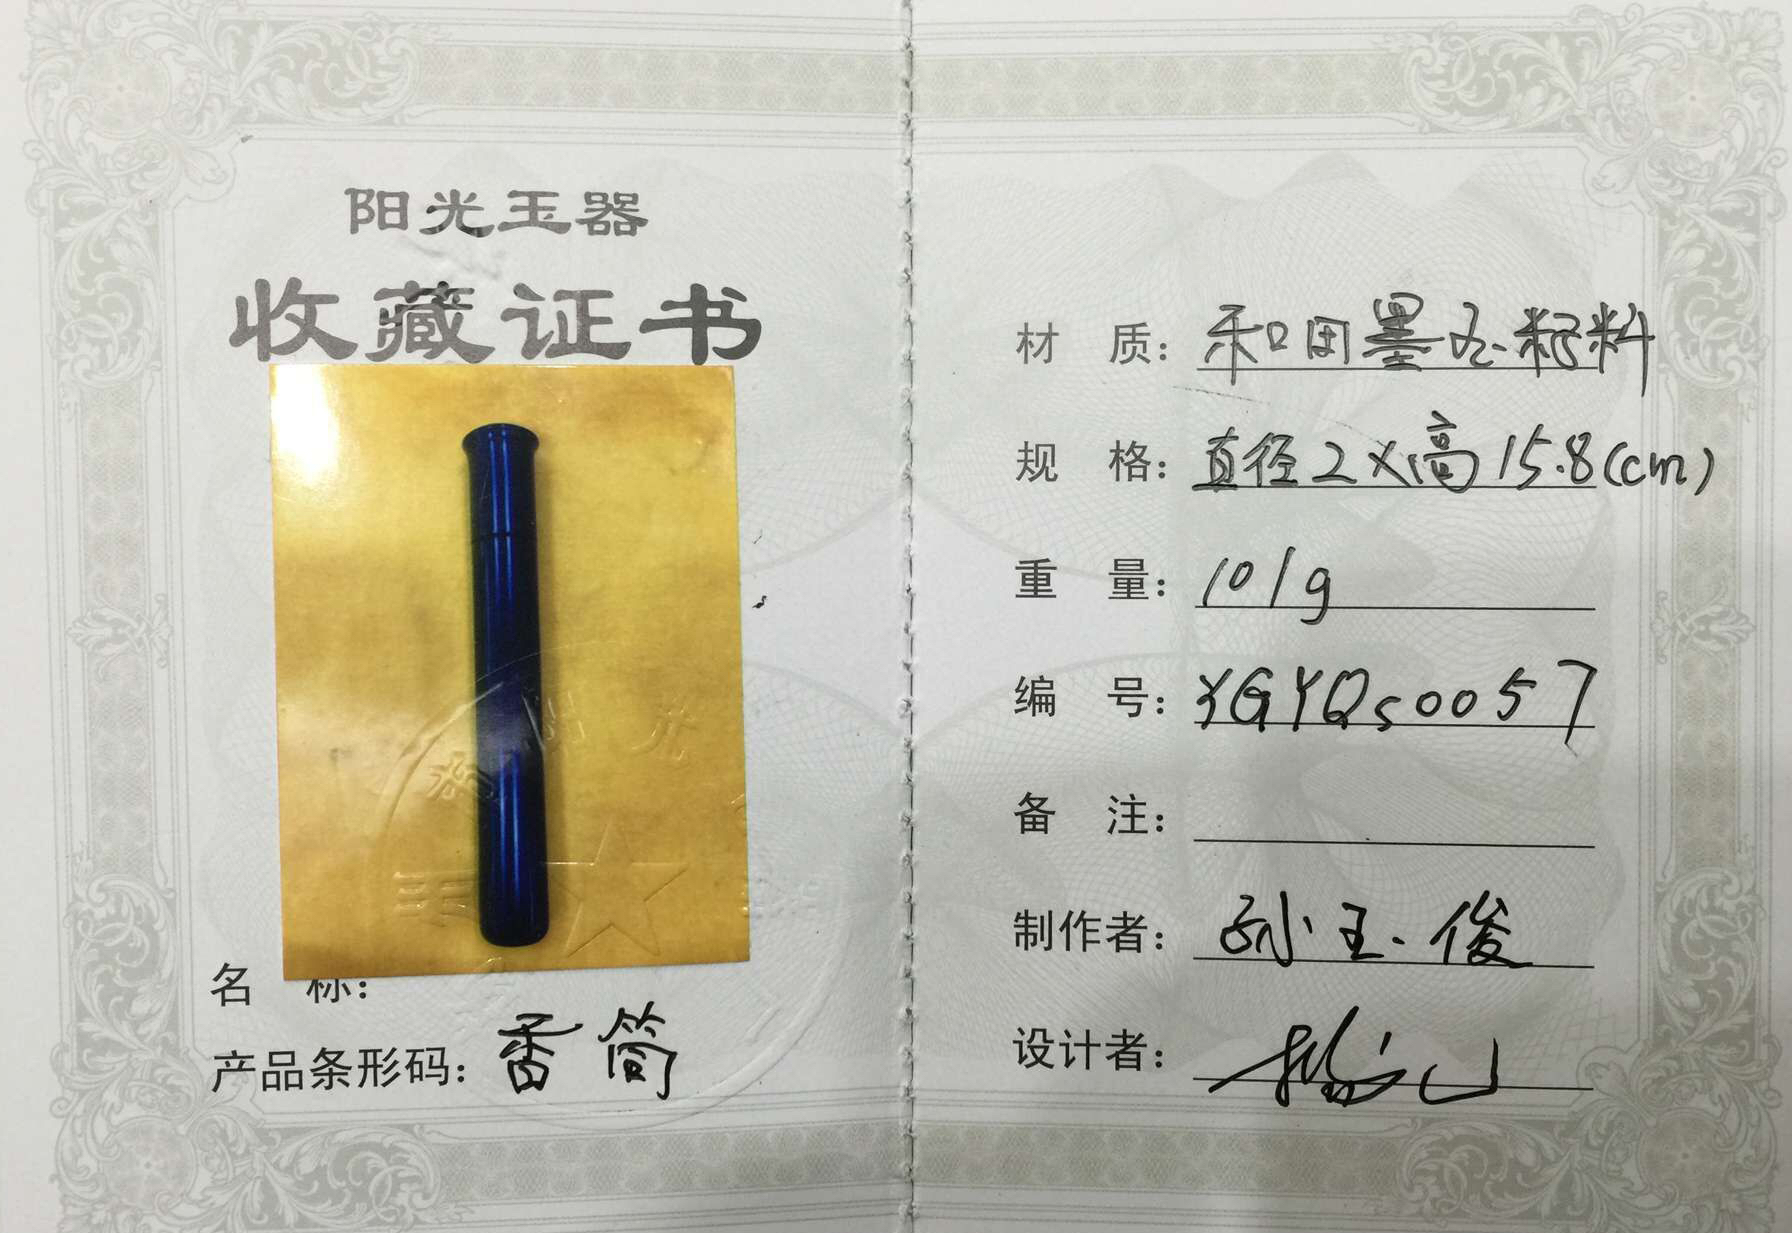 阳光玉器
收藏证书
名 称:
产品条形码: 香筒
材 质: 和田墨玉籽料
规 格: 直径2×高15.8(cm)
重 量: 101g
编 号: YGYQs0057
备 注:
制作者: 孙玉俊
设计者: